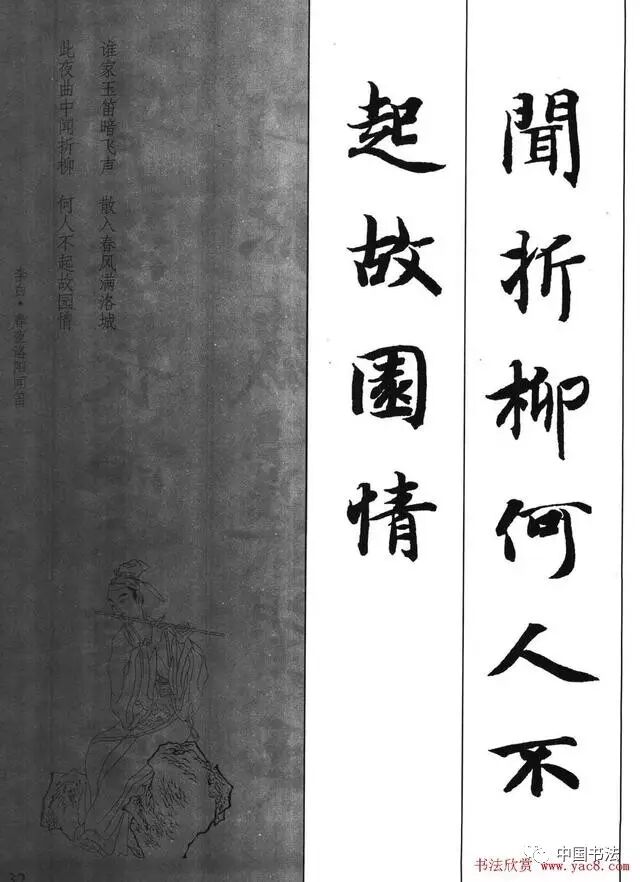 聞折柳何人不
起故園情
谁家玉笛暗飞声 散入春风满洛城
此夜曲中闻折柳 何人不起故园情
李白·春夜洛阳闻笛
32
中国书法
书法欣赏 www.yac8.com